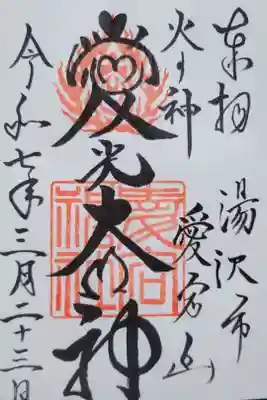 奉拝
湯沢市
火の神
愛宕山
愛光大神
令和七年三月二十三日